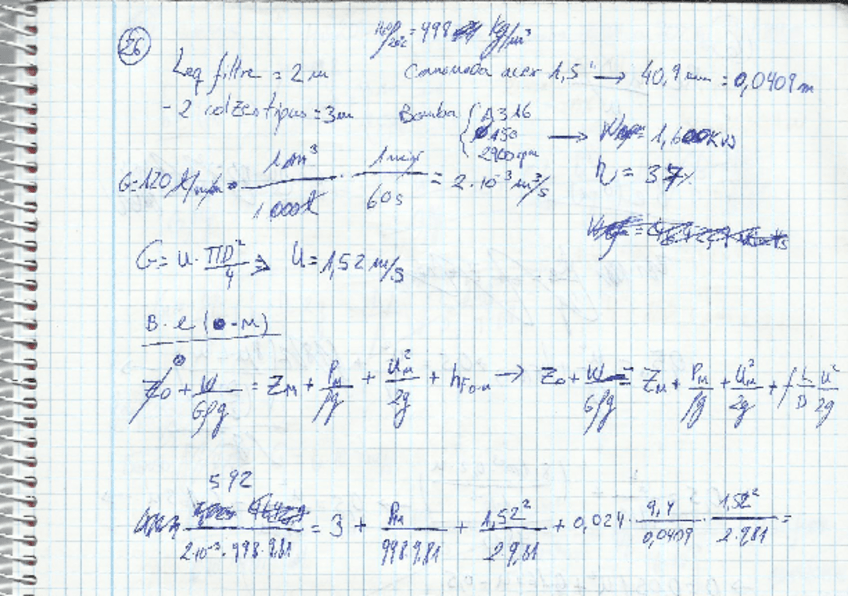 26
ρ H2O 20ºC = 998 kg/m³
Leq filtre = 2 m
Canonada acer 1,5" → 40,9 mm = 0,0409 m
- 2 colzes tipus = 3m
Bomba { A316
ø 150
2900 rpm
→ = 1,600 kW
η = 37%
G = 120 l/min · 1 m³ / 1000 l · 1 min / 60 s = 2·10⁻³ m³/s
G = u · πD²/4 ⇒ u = 1,52 m/s
B.e (0-M)
Z0 + W/Gρg = ZM + PM/ρg + UM²/2g + hF0-M → Z0 + W/Gρg = ZM + PM/ρg + UM²/2g + f L/D u²/2g
592
/ 2·10⁻³·998·9,81 = 3 + PM / 998·9,81 + 1,52² / 2·9,81 + 0,024 · 9,4 / 0,0409 · 1,52² / 2·9,81 =